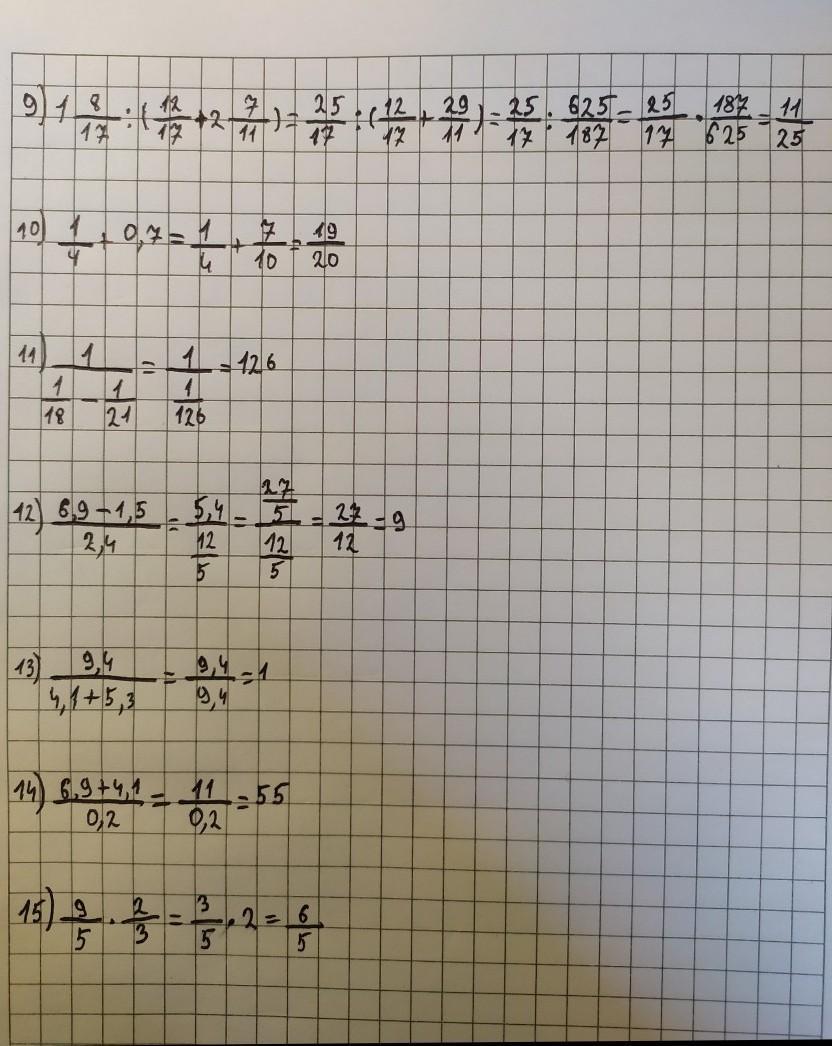 9) 1 8/17 : (12/17 + 2 7/11) = 25/17 : (12/17 + 29/11) = 25/17 : 625/187 = 25/17 · 187/625 = 11/25
10) 1/4 + 0,7 = 1/4 + 7/10 = 19/20
11) 1/(1/18 - 1/21) = 1/(1/126) = 126
12) (6,9 - 1,5)/2,4 = 5,4/(12/5) = (27/5)/(12/5) = 27/12 = 9
13) 9,4/(4,1 + 5,3) = 9,4/9,4 = 1
14) (6,9 + 4,1)/0,2 = 11/0,2 = 55
15) 9/5 · 2/3 = 3/5 · 2 = 6/5